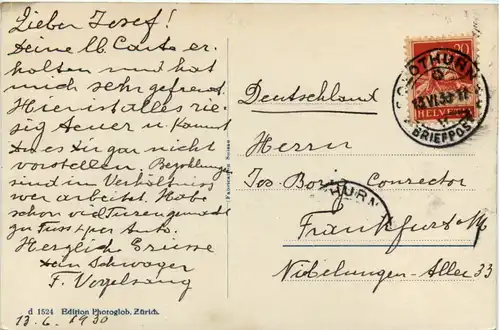 Lieber Josef!
Deine lb. Carte er-
halten und hat
mich sehr gefreut.
Hier ist alles rie-
sig teuer u. kannst
du es dir gar nicht
vorstellen. Bezahlungen
sind im Verhältniss
wer arbeitet. Habe
schon viel Turen gemacht
zu Fuss & per Auto.
Herzliche Grüsse
dein Schwager
F. Vogelsang
d 1524 Edition Photoglob, Zürich.
13.6.1930
20
HELVETIA
SOLOTHURN
13.VI.30-11
BRIEFPOST
Deutschland
Herrn
Jos. Conrector
THURN
Frankfurt a/M
Nibelungen-Allee 33